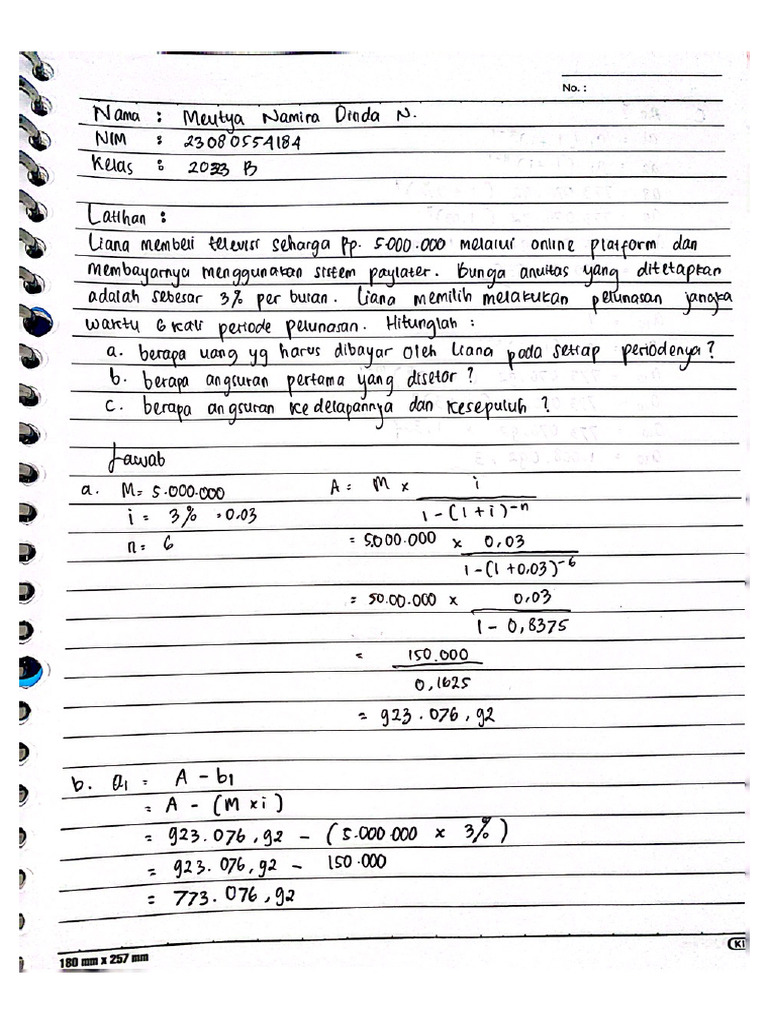 No. :
Nama : Meutya Namira Dinda N.
NIM : 23080554184
Kelas : 2023 B
Latihan :
Liana membeli televisi seharga Rp. 5.000.000 melalui online platform dan
membayarnya menggunakan sistem paylater. Bunga anuitas yang ditetapkan
adalah sebesar 3% per bulan. Liana memilih melakukan pelunasan jangka
waktu 6 kali periode pelunasan. Hitunglah :
a. berapa uang yg harus dibayar oleh Liana pada setiap periodenya ?
b. berapa angsuran pertama yang disetor ?
c. berapa angsuran kedelapannya dan kesepuluh ?
Jawab
a. M = 5.000.000 A = M x i / 1 - (1 + i)^-n
i = 3% = 0.03
n = 6 = 5.000.000 x 0,03 / 1 - (1 + 0,03)^-6
= 50.00.000 x 0,03 / 1 - 0,8375
= 150.000 / 0,1625
= 923.076,92
b. a1 = A - b1
= A - (M x i)
= 923.076,92 - (5.000.000 x 3%)
= 923.076,92 - 150.000
= 773.076,92
180 mm x 257 mm
KI